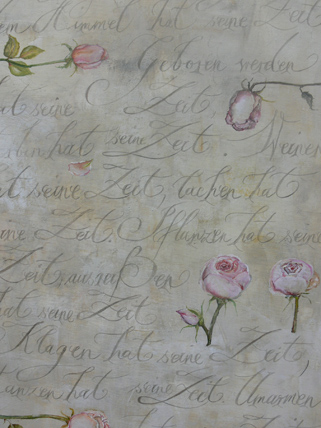 em Himmel hat seine Zeit
Geboren werden
at seine Zeit
hat seine Zeit. Weinen
at seine Zeit, lachen hat
ine Zeit. Pflanzen hat seine
Zeit, ausreißen
hat seine Zeit
Klagen hat seine Zeit,
tanzen hat seine Zeit. Umarmen